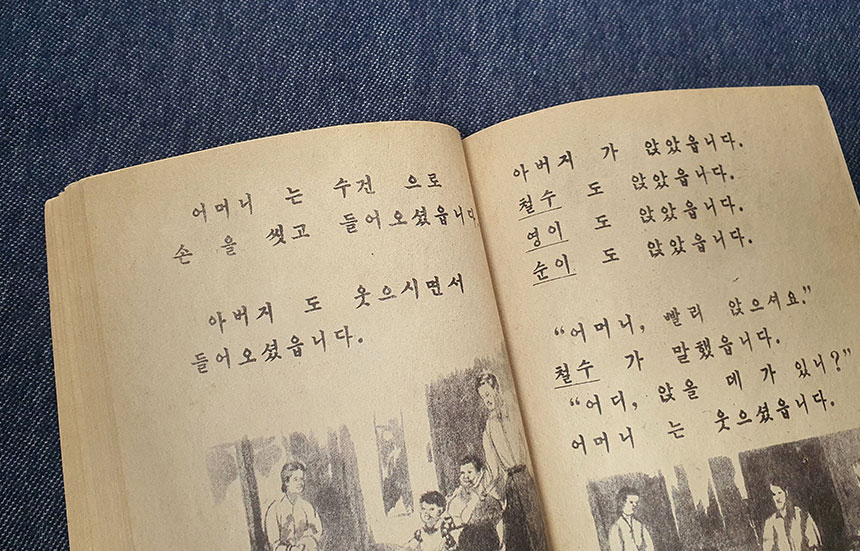 어머니 는 수건 으로
손 을 씻고 들어오셨읍니다.
아버지 도 웃으시면서
들어오셨읍니다.
아버지 가 앉았읍니다.
철수 도 앉았읍니다.
영이 도 앉았읍니다.
순이 도 앉았읍니다.
“어머니, 빨리 앉으셔요.”
철수 가 말했읍니다.
“어디, 앉을 데 가 있니?”
어머니 는 웃으셨읍니다.